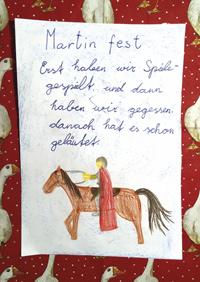 Martin fest
Erst haben wir Spiele
gespielt, und dann
haben wir gegessen.
danach hat es schon
geläutet.